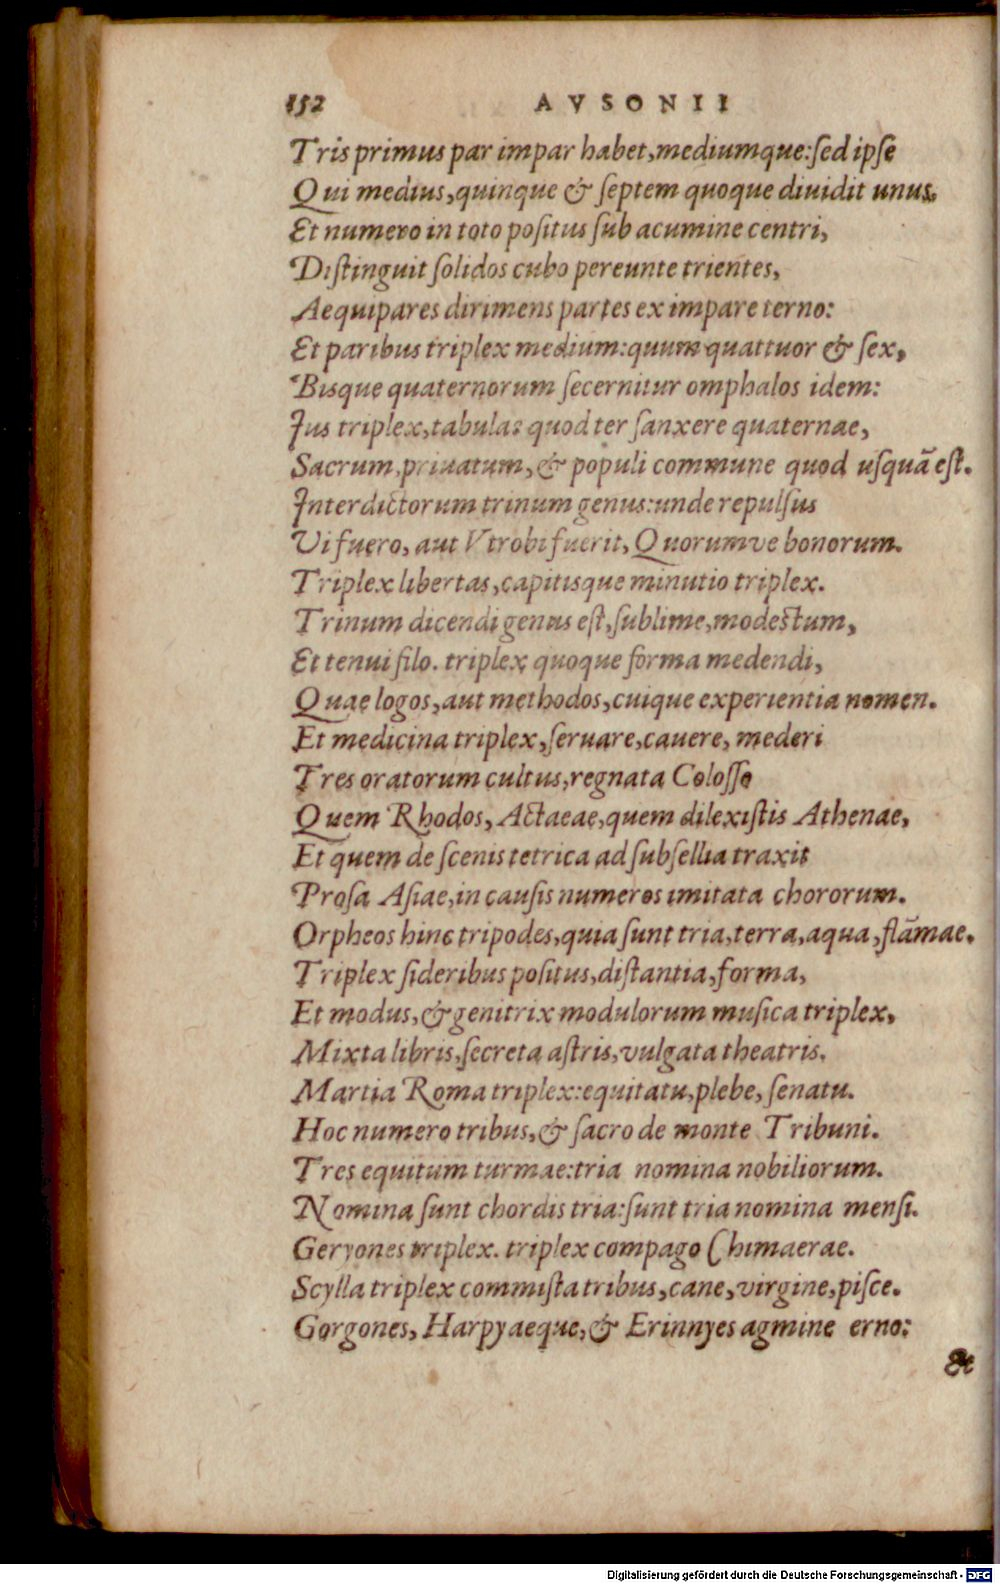 152 AVSONII
Tris primus par impar habet, mediumque: ſed ipſe
Qui medius, quinque & ſeptem quoque diuidit unus,
Et numero in toto poſitus ſub acumine centri,
Diſtinguit ſolidos cubo pereunte trientes,
Aequipares dirimens partes ex impare terno:
Et paribus triplex medium: quum quattuor & ſex,
Bisque quaternorum ſecernitur omphalos idem:
Jus triplex, tabulas quod ter ſanxere quaternae,
Sacrum, priuatum, & populi commune quod uſquā eſt.
Interdictorum trinum genus: unde repulſus
Vi fuero, aut Vtrobi fuerit, Quorumve bonorum.
Triplex libertas, capitisque minutio triplex.
Trinum dicendi genus eſt, ſublime, modeſtum,
Et tenui filo. triplex quoque forma medendi,
Quae logos, aut methodos, cuique experientia nomen.
Et medicina triplex, ſeruare, cauere, mederi
Tres oratorum cultus, regnata Coloſſo
Quem Rhodos, Actaeae, quem dilexiſtis Athenae,
Et quem de ſcenis tetrica ad ſubſellia traxit
Proſa Aſiae, in cauſis numeros imitata chororum.
Orpheos hinc tripodes, quia ſunt tria, terra, aqua, flāmae.
Triplex ſideribus poſitus, diſtantia, forma,
Et modus, & genitrix modulorum muſica triplex,
Mixta libris, ſecreta aſtris, vulgata theatris.
Martia Roma triplex: equitatu, plebe, ſenatu.
Hoc numero tribus, & ſacro de monte Tribuni.
Tres equitum turmae: tria nomina nobiliorum.
Nomina ſunt chordis tria: ſunt tria nomina menſi.
Geryones triplex. triplex compago Chimaerae.
Scylla triplex commiſta tribus, cane, virgine, piſce.
Gorgones, Harpyaeque, & Erinnyes agmine erno:
&
Digitalisierung gefördert durch die Deutsche Forschungsgemeinschaft - DFG